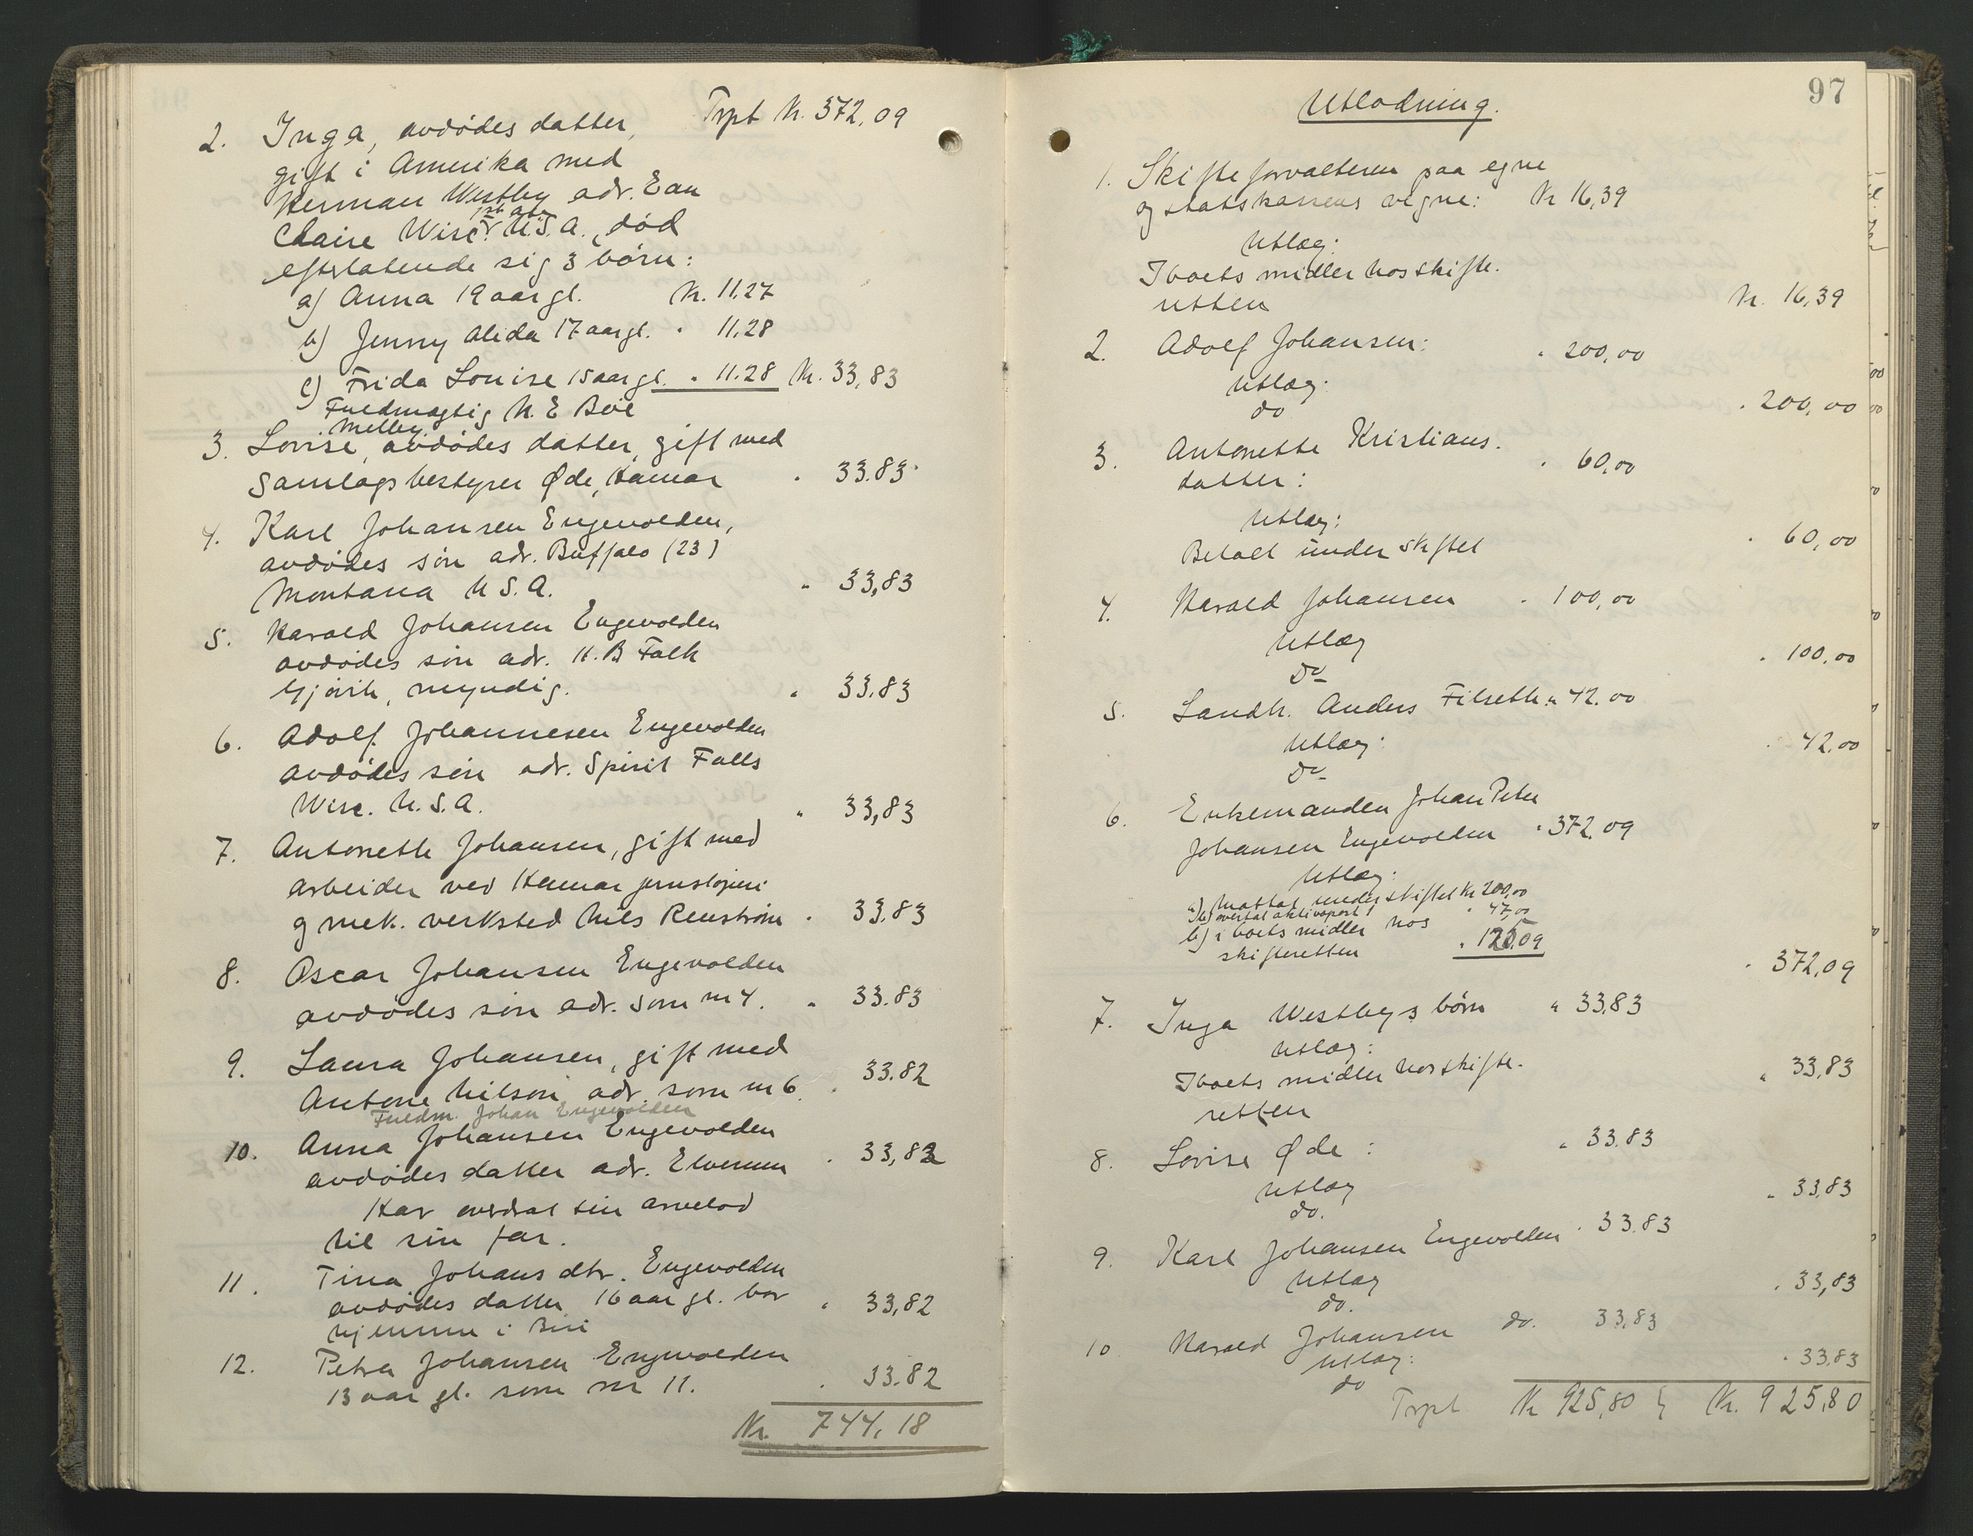 Trpt Kr. 372,09
2. Inga, avdødes datter,
gift i Amerika med
Herman Westby adr. Eau
Claire Wisc. U.S.A., død
efterlatende sig 3 børn:
a) Anna 19 aar gl. Kr. 11.27
b) Jenny Alida 17 aar gl. " 11.28
c) Frida Louise 15 aar gl. " 11.28 Kr. 33,83
Fuldmægtig H. E Boe
Melby.
3. Lovise, avdødes datter, gift med
Samlagsbestyrer Øde, Hamar " 33.83
4. Karl Johansen Engevolden,
avdødes søn adr. Buffalo (23)
Montana U S. A. " 33,83
5. Harald Johansen Engevolden
avdødes søn adr. H. B Falk
Gjøvik, myndig. " 33.83
6. Adolf Johannesen Engevolden
avdødes søn adr. Spirit Falls
Wisc. U.S.A. " 33,83
7. Antonette Johansen, gift med
arbeider ved Hamar jernstøperi
og mek. verksted Nils Renstrøm " 33.83
8. Oscar Johansen Engevolden
avdødes søn adr. som nr 4. " 33.83
9. Laura Johansen, gift med
Antone Nilson, adr. som nr 6. " 33.82
Fuldm. Johan Engevolden
10. Anna Johansen Engevolden
avdødes datter adr. Elverum " 33,82
Har overdrat sin arvelod
til sin far.
11. Tina Johansdtr. Engevolden
avdødes datter 16 aar gl. bor " 33,82
hjemme i Biri
12. Petra Johansen Engevolden
13 aar gl. som nr 11. " 33.82
Kr. 744.18
97
Utlodning.
1. Skifteforvalteren paa egne
og statskassens vegne: Kr 16,39
Utlæg:
I boets midler hos skifte-
retten Kr. 16,39
2. Adolf Johansen: " 200,00
Utlæg:
do " 200,00
3. Antonette Kristians-
datter: " 60,00
Utlæg:
Betalt under skiftet " 60,00
4. Harald Johansen " 100,00
Utlæg
Do " 100,00
5. Landh. Anders Filseth " 42.00
Utlæg:
Do " 42.00
6. Enkemanden Johan Peter
Johansen Engevolden " 372.09
Utlæg:
a) Mottat under skiftet Kr 200,00
b) overtat aktivapost 1 " 47,00
b) i boets midler hos
skifteretten " 125,09
" 372,09
7. Inga Westbys børn " 33,83
Utlæg:
I boets midler hos skifte-
retten " 33,83
8. Lovise Øde: " 33.83
Utlæg
do. " 33,83
9. Karl Johansen Engevolden " 33.83
Utlæg
do. " 33,83
10 Harald Johansen do. 33,83
Utlæg:
do " 33.83
Trpt Kr 925,80 Kr. 925,80